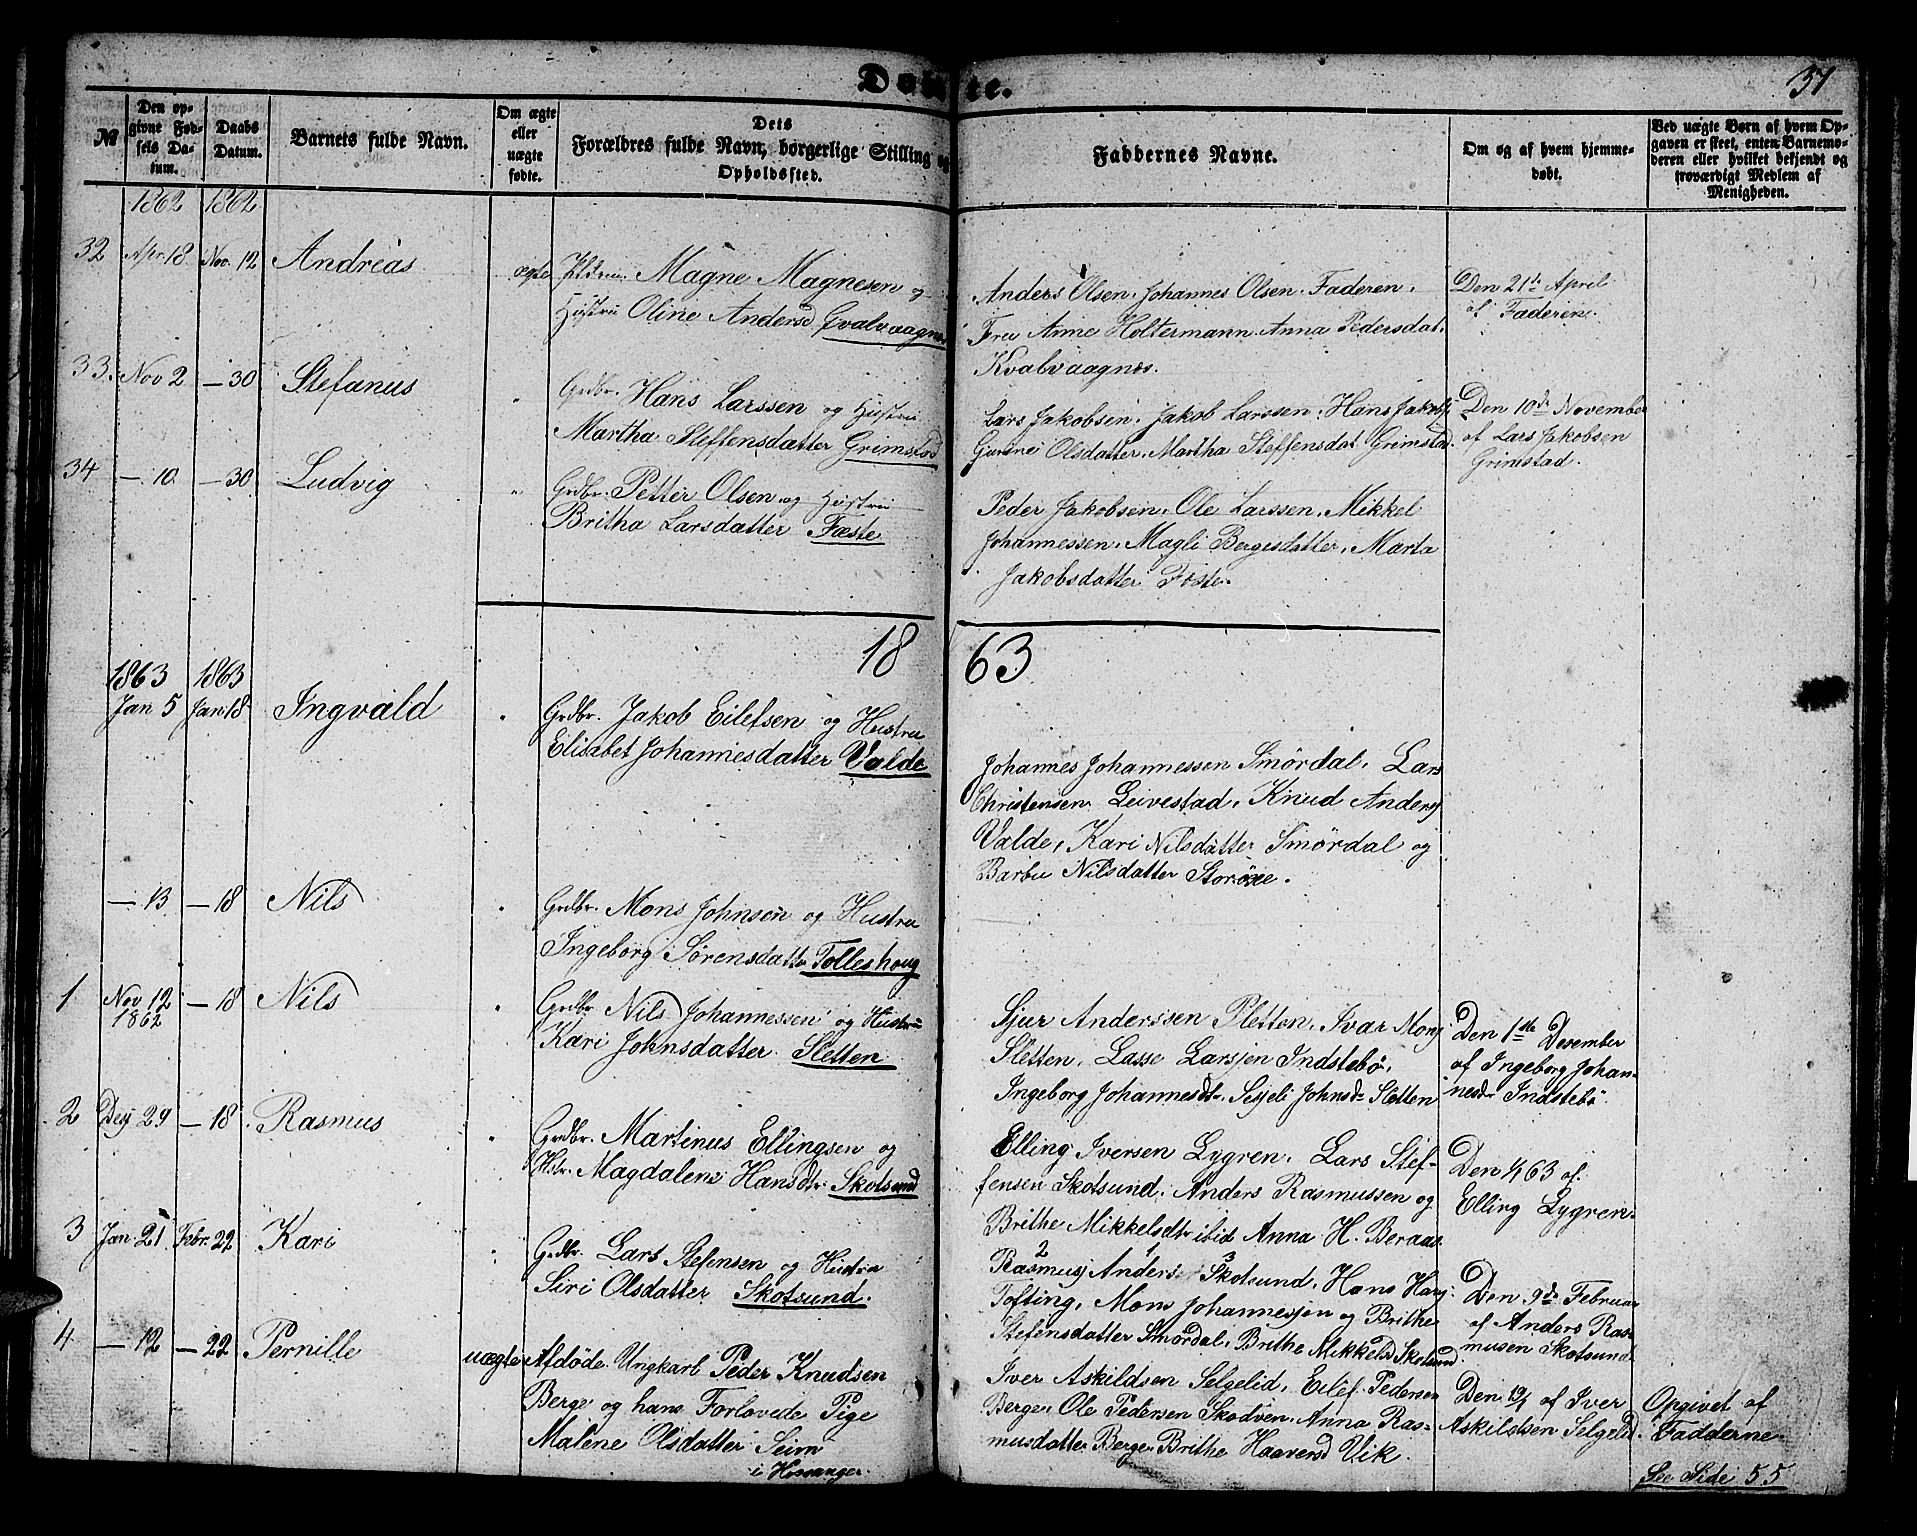 Døbte.
37
№
Den op-
givne Fød-
sels Da-
tum.
Daabs
Datum.
Barnets fulde Navn.
Om ægte
eller
uægte
fødte.
Dets
Forældres fulde Navn, borgerlige Stilling og
Opholdssted.
Faddernes Navne.
Om og af hvem hjemme-
døbt.
Ved uægte Børn af hvem Op-
gaven er skeet, enten Barnemo-
deren eller hvilket bekjendt og
troværdigt Medlem af
Menigheden.
1862 1862
32 Apr. 18. Nov. 12 Andreas ægte
Magne Magnesen og
Hustru Oline Andersd Qvalvaagnæs
Anders Olsen. Johannes Olsen. Faderen.
Fru Anne Holtermann. Anna Pedersdat.
Kvalvaagnæs.
Den 21de April
af Faderen.
33. Nov 2 — 30 Stefanus "
Grdbr. Hans Larssen og Hustru
Martha Steffensdatter Grimstad
Lars Jakobsen. Jakob Larssen. Hans Jakobs.
Olsdatter. Martha Steffensdat Grimstad.
Den 10de November
af Lars Jakobsen
Grimstad.
34 — 10. — 30. Ludvig "
Grdbr. Petter Olsen og Hustru
Britha Larsdatter Fæste
Peder Jakobsen. Ole Larssen. Mikkel
Johannessen. Magli Bergesdatter. Marta
Jakobsdatter Föste.
18 63
1863 1863
Jan 5 Jan. 18 Ingvald "
Grdbr. Jakob Eilefsen og Hustru
Elisabet Johannesdatter Valde
Johannes Johannessen Smördal. Lars
Christensen Leivestad. Knud Anders
Valde, Kari Nilsdatter Smördal og
Barbu Nilsdatter Storöxe.
— 13 — 18 Nils "
Grdbr. Mons Johnson og Hustru
Ingeborg Sörensdattr Tolleshoug
1 Nov 12 — 18 Nils "
1862
Grdbr Nils Johannessen og Hustru
Kari Johnsdatter Sletten
Sjur Anderssen Sletten. Ivar Mons
Sletten. Lasse Larsjen Indstebö.
Ingeborg Johannesdt. Johnsd. Sletten
Den 1ste Desember
af Ingeborg Johan-
nesdr Indstebö.
2 29 — 18. Rasmus "
Grdbr. Martinus Ellingsen og
Hstr. Magdalene Hansdtr. Skotsund
Elling Iversen Lygren. Lars Stef-
fensen Skotsund. Anders Rasmussen og
Brithe Mikkelsdtr ibid Anna H. Beraas.
Den 4 63 af
Elling Lygren.
3 Jan 21 Febr. 22 Kari "
Grdbr. Lars Stefensen og Hustru
Siri Olsdatter Skotsund.
2 1 3
Rasmus Anders Skotsund. Hans Hans
Tofting. Mons Johannesjen og Brithe
Stefensdatter Smördal. Brithe Mikkelsd Skotsund.
Den 9de Februar
af Anders Ras-
musen Skotsund.
4 — 12 — 22 Pernille
uægte Afdøde Ungkarl Peder Knudsen
Berge og hans Forlovede Pige
Malene Olsdatter Seim
i Hosanger.
Iver Askildsen Selgelid. Eilef Pedersen
Berge. Ole Pedersen Skodven. Anna Ras-
musdatter Berge. Brithe Haaversd Vik.
Den 19/1 af Iver
Askildsen Selgelid.
Opgivet af
Fadderne
See Side 55